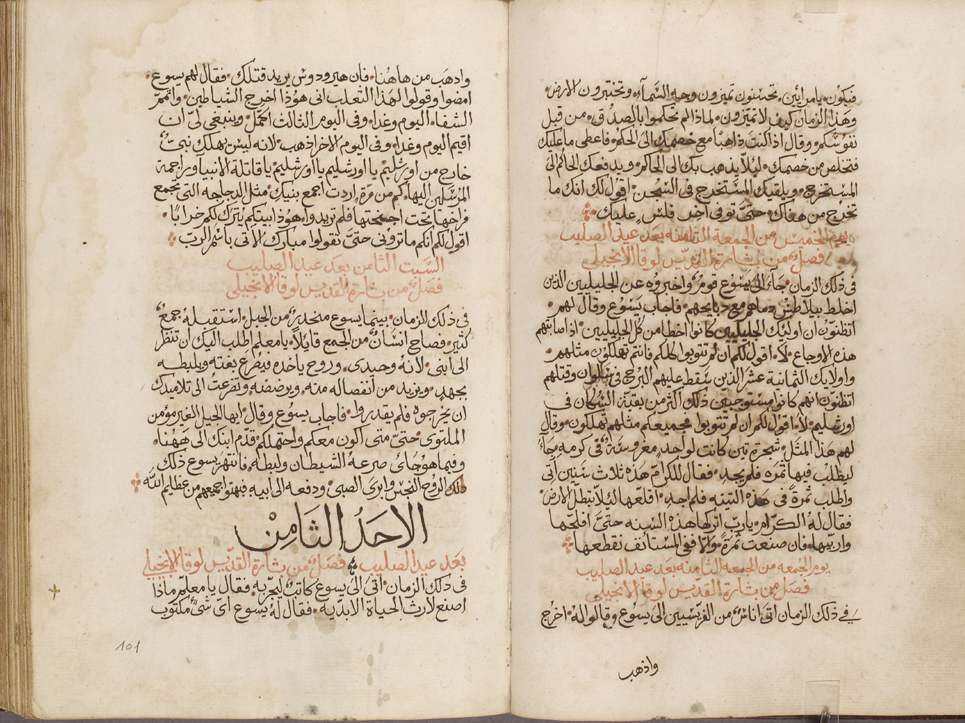 فيكون يا مرائين تحسنون تميزون وجه السمآء وتختبرون الارض
وهذا الزمان كيف لا تميزون لماذا لم تحكموا بالصدق من قبل
نفوسكم وقال اذا كنت ذاهبًا مع خصمك الى الحاكم فاعطى ما عليك
فتخلص من خصمك ليلا يذهب بك الى الحاكم ويدفعك الحاكم الى
المستخرج ويلقيك المستخرج في السجن اقول لك انك ما
تخرج من هناك حتى توفى اخر فلس عليك
يوم الخميس من الجمعة الثامنه بعد عيد الصليب
فصل من بشارة القديس لوقا الانجيلى
في ذلك الزمان جآء الى يسوع قوم واخبروه عن الجليليين الذين
اخلط بيلاطس دماهم مع دبايحهم فاجاب يسوع وقال لهم
اتظنون ان اوليك الجليليين كانوا اخطا من كل الجليليين اذ اصابتهم
هذه الاوجاع لا اقول لكم ان لم تتوبوا كلكم فانتم تهلكون مثلهم
واولايك الثمانية عشر الذين سقط عليهم البرج في سلوان وقتلهم
اتظنون انهم كانوا مستوجبين ذلك اكثر من بقية السكان في
اورشليم لا اقول لكم ان لم تتوبوا جميعكم مثلهم تهلكون وقال
لهم هذا المثل شجرة تين كانت لواحد مغروسة في كرمه جآء
ليطلب فيها ثمرة فلم يجد فقال للكرام هذه ثلاث سنين آتى
واطلب ثمرةً في هذه التينه فلم اجد اقلعها ليلا تبطل الارض
فقال له الكرام يا رب اتركها هذه السنه حتى افلحها
واربيها فان صنعت ثمرة والا ففى المستانف نقطعها
يوم الجمعه من الجمعة الثامنه بعد عيد الصليب
فصل من بشارة القديس لوقا الانجيلى
في ذلك الزمان اتى اناس من الفريسيين الى يسوع وقالوا له اخرج
واذهب
واذهب من هاهنا فان هيرودوس يريد قتلك فقال لهم يسوع
امضوا وقولوا لهذا الثعلب انى هوذا اخرج الشياطين واتمم
الشفاء اليوم وغدا وفى اليوم الثالث اكمل وينبغى لى ان
اقيم اليوم وغدا وفى اليوم الاخر اذهب لانه ليس يهلك نبى
خارج من اورشليم يا اورشليم يا اورشليم يا قاتلة الانبيا وراجمة
المرسلين اليها كم من مرة اردت اجمع بنيك مثل الدجاجه التى تجمع
فراخها تحت اجنحتها فلم تريدوا هوذا بيتكم يترك لكم خرابًا
اقول لكم انكم ما ترونى حتى تقولوا مبارك الاتى باسم الرب
السبت الثامن بعد عيد الصليب
فصل من بشارة القديس لوقا الانجيلى
في ذلك الزمان بينما يسوع منحدر من الجبل استقبله جمع
كثير فصاح انسان من الجمع قايلا يا معلم اطلب اليك ان تنظر
الى ابنى لانه وحيدى وروح ياخذه فيصرع بغته ويلبطه
بجهد ويزبد من انفصاله منه ويرضضه وتضرعت الى تلاميذك
ان يخرجوه فلم يقدروا فاجاب يسوع وقال ايها الجيل الغير مؤمن
الملتوى حتى متى اكون معكم واحتملكم قدم ابنك الى ههنا
وفيما هو جائى صرعه الشيطان ولبطه فانتهر يسوع ذلك
ذلك الروح النجس وابرى الصبى ودفعه الى ابيه فبهتوا جميعهم من عظايم الله
الاحد الثامن
بعد عيد الصليب فصل من بشارة القديس لوقا الانجيلى
في ذلك الزمان اتى الى يسوع كاتب ليجربه فقال يا معلم ماذا
اصنع لارث الحياة الابدية فقال له يسوع اى شى مكتوب
101